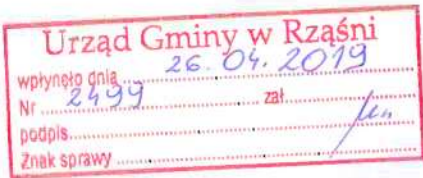 Urząd Gminy w Rząśni
wpłynęło dnia 26.04.2019
Nr 2499 zał.
podpis
Znak sprawy